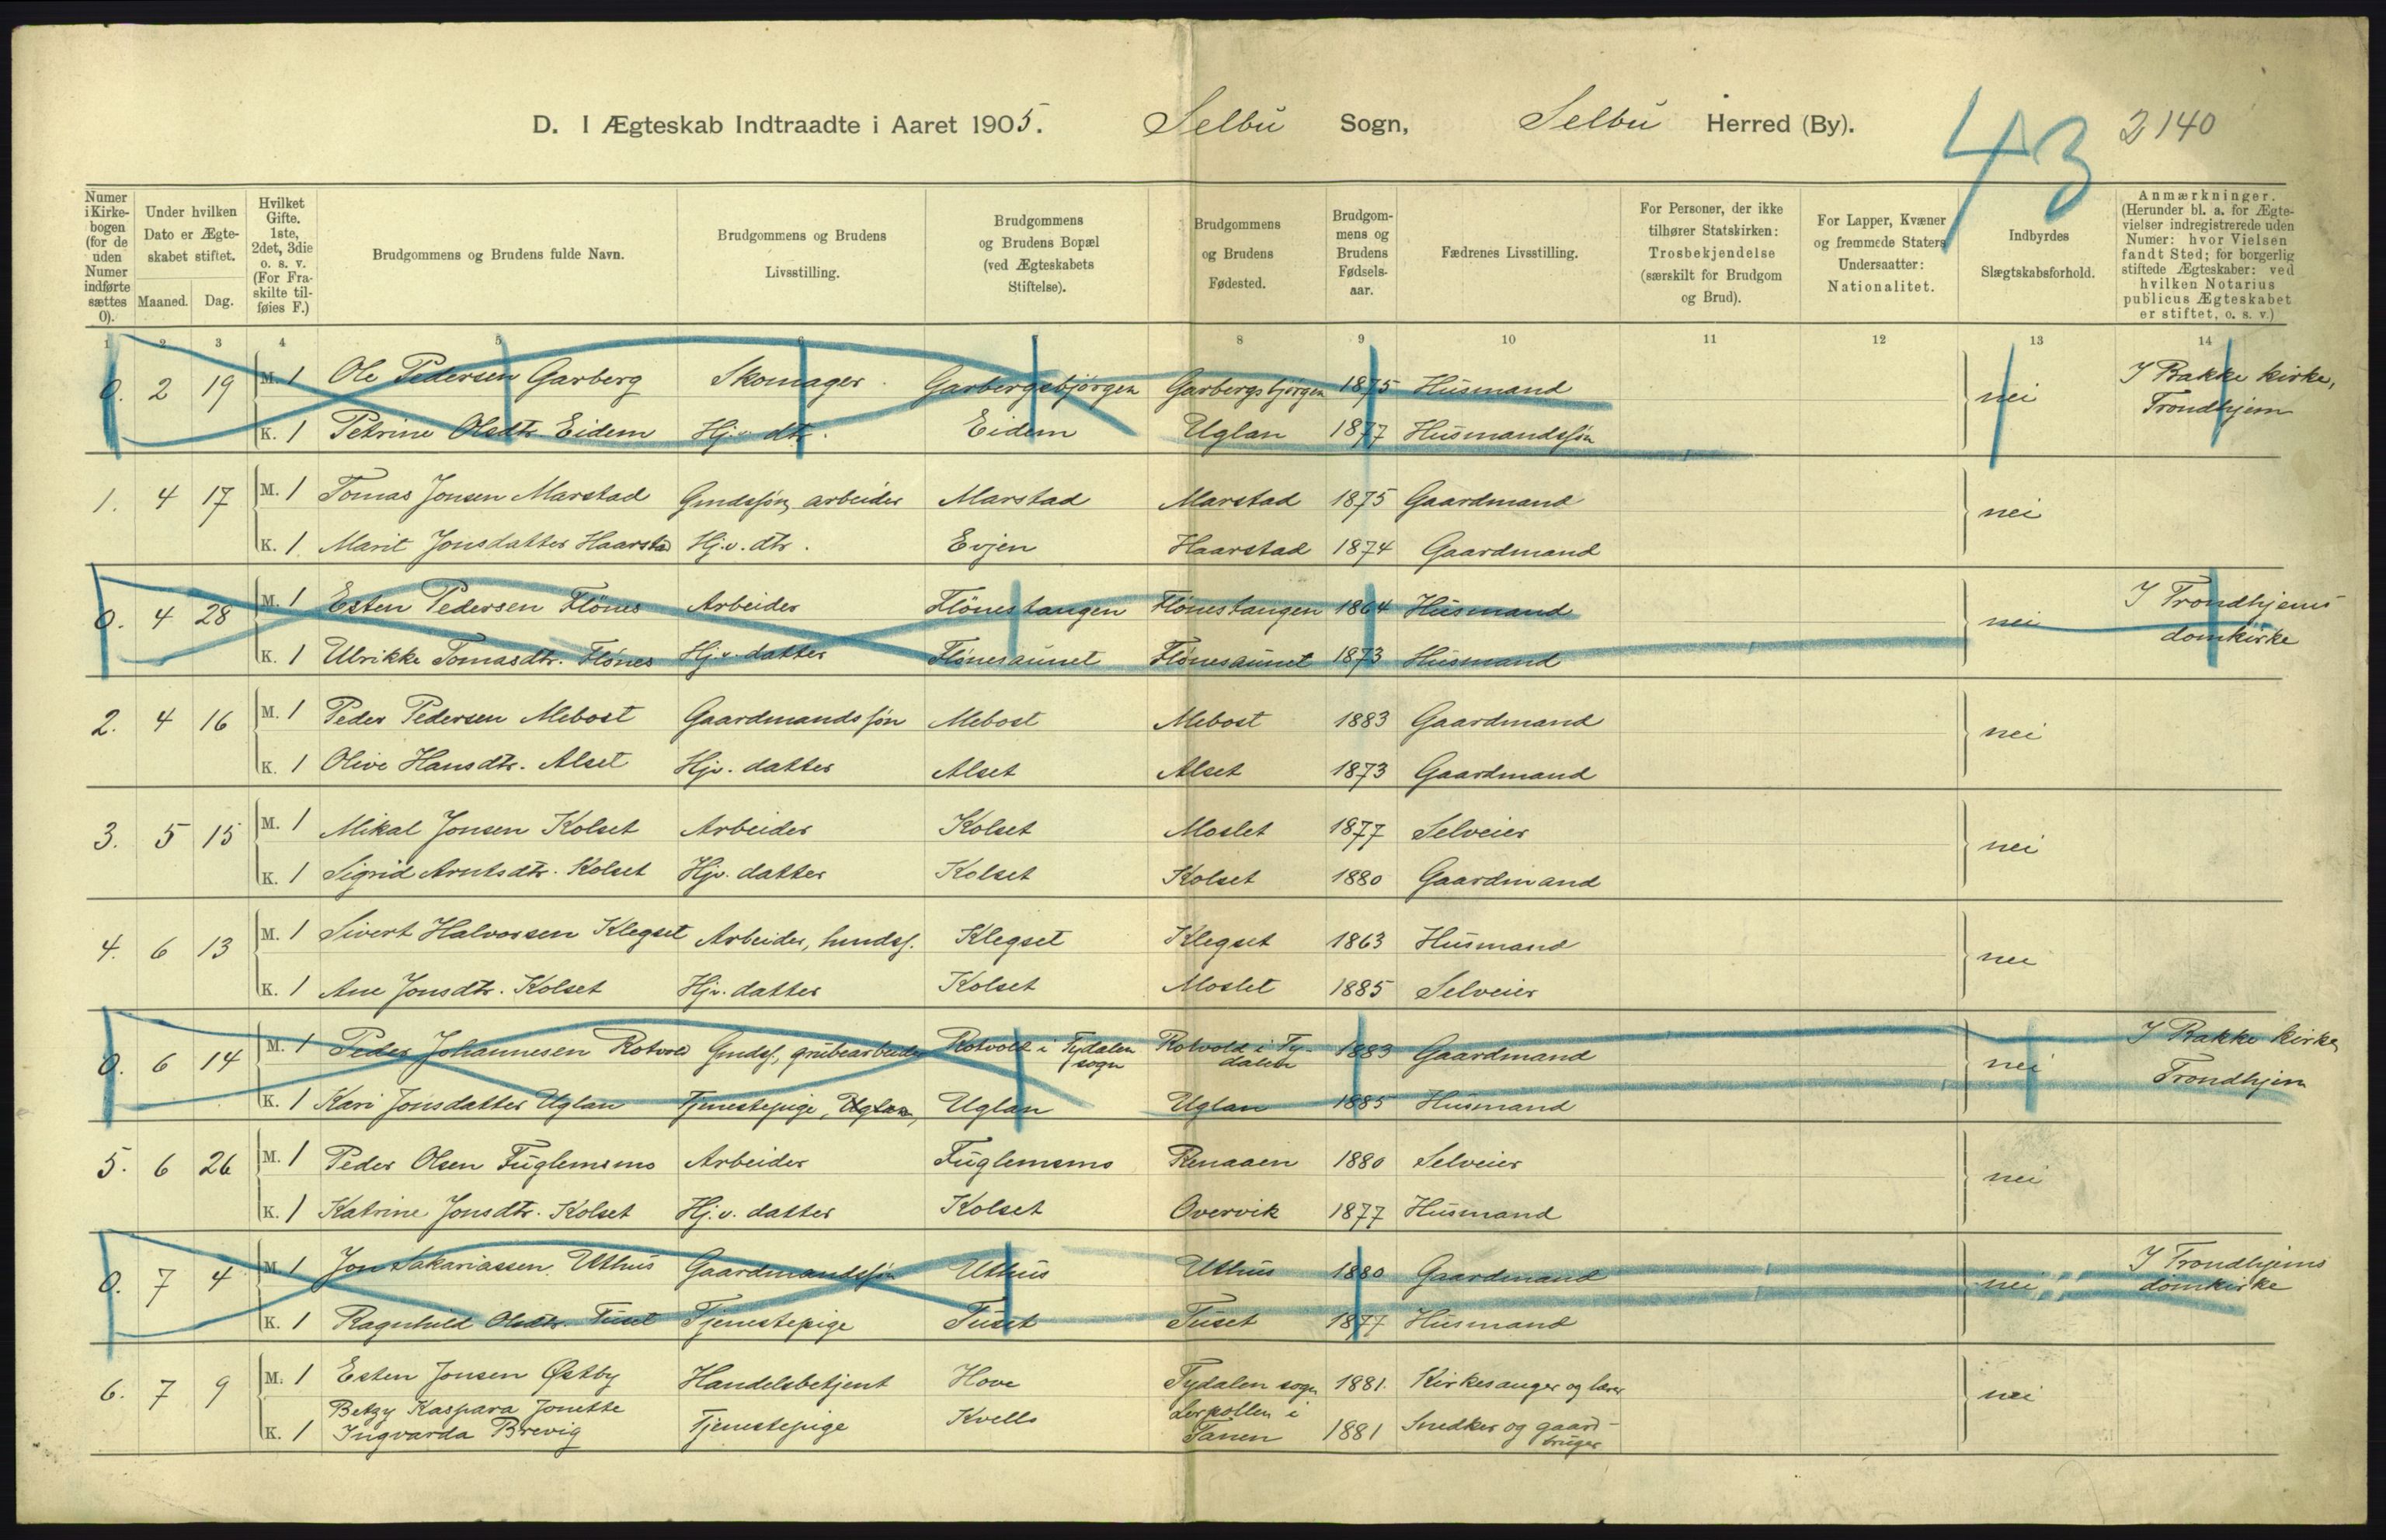 D. I Ægteskab Indtraadte i Aaret 1905. Selbu Sogn, Selbu Herred (By). 43 2140
Numer i Kirkebogen (for de uden Numer indførte sættes 0).
Under hvilken Dato er Ægteskabet stiftet.
Maaned. Dag.
Hvilket Gifte. 1ste, 2det, 3die o. s. v. (For Fraskilte tilføies F.)
Brudgommens og Brudens fulde Navn.
Brudgommens og Brudens Livsstilling.
Brudgommens og Brudens Bopæl (ved Ægteskabets Stiftelse).
Brudgommens og Brudens Fødested.
Brudgommens og Brudens Fødselsaar.
Fædrenes Livsstilling.
For Personer, der ikke tilhører Statskirken: Trosbekjendelse (særskilt for Brudgom og Brud).
For Lapper, Kvæner og fremmede Staters Undersaatter: Nationalitet.
Indbyrdes Slægtskabsforhold.
Anmærkninger. (Herunder bl. a. for Ægtevielser indregistrerede uden Numer: hvor Vielsen fandt Sted; for borgerlig stiftede Ægteskaber: ved hvilken Notarius publicus Ægteskabet er stiftet, o. s. v.)
1 2 3 4 5 6 7 8 9 10 11 12 13 14
0. 2 19 M. 1 Ole Pedersen Garberg Skomager Garbergsbjörgen Garbergsbjörgen 1875 Husmand nei I Bakke kirke, Trondhjem
K. 1 Petrine Olsdtr. Eidem Hj. v. dtr. Eidem Uglan 1877 Husmandssøn
1. 4 17 M. 1 Tomas Jonsen Marstad Gmdssøn, arbeider Marstad Marstad 1875 Gaardmand nei
K. 1 Marit Jonsdatter Haarstad Hj.v. dtr. Evjen Haarstad 1874 Gaardmand
0. 4 28 M. 1 Esten Pedersen Flönes Arbeider Flönestangen Flönestangen 1864 Husmand nei I Trondhjems domkirke
K. 1 Ulrikke Tomasdtr. Flönes Hj.v. datter Flönesaunet Flönesaunet 1873 Husmand
2. 4 16 M. 1 Peder Pedersen Mebost Gaardmandssøn Mebost Mebost 1883 Gaardmand nei
K. 1 Olive Hansdtr. Alset Hjv. datter Alset Alset 1873 Gaardmand
3. 5 15 M. 1 Mikal Jonsen Kolset Arbeider Kolset Moslet 1877 Selveier nei
K. 1 Sigrid Arntsdtr. Kolset Hjv. datter Kolset Kolset 1880 Gaardmand
4. 6 13 M. 1 Sivert Halvorsen Klegset Arbeider, hmdss. Klegset Klegset 1863 Husmand nei
K. 1 Ane Jonsdtr. Kolset Hjv. datter Kolset Moslet 1885 Selveier
0. 6 14 M. 1 Peder Johannesen Rotvold Gmdss., grubearbeider Rotvold i Tydalen sogn Rotvold i Tydalen 1883 Gaardmand nei I Bakke kirke, Trondhjem
K. 1 Kari Jonsdatter Uglan Tjenestepige, Uglan, Uglan Uglan 1885 Husmand
5. 6 26 M. 1 Peder Olsen Fuglemsmo Arbeider Fuglemsmo Renaaen 1880 Selveier nei
K. 1 Katrine Jonsdtr. Kolset Hj.v. datter Kolset Overvik 1877 Husmand
0. 7 4 M. 1 Jon Sakariassen Uthus Gaardmandssøn Uthus Uthus 1880 Gaardmand nei I Trondhjems domkirke
K. 1 Ragnhild Olsdtr. Tuset Tjenestepige Tuset Tuset 1877 Husmand
6. 7 9 M. 1 Esten Jonsen Østby Handelsbetjent Hove Tydalen sogn 1881. Kirkesanger og lærer nei
K. 1 Betzy Kaspara Jonette Ingvarda Brevig Tjenestepige Kvello Lerpollen i Tanen 1881 Snedker og gaardbruger